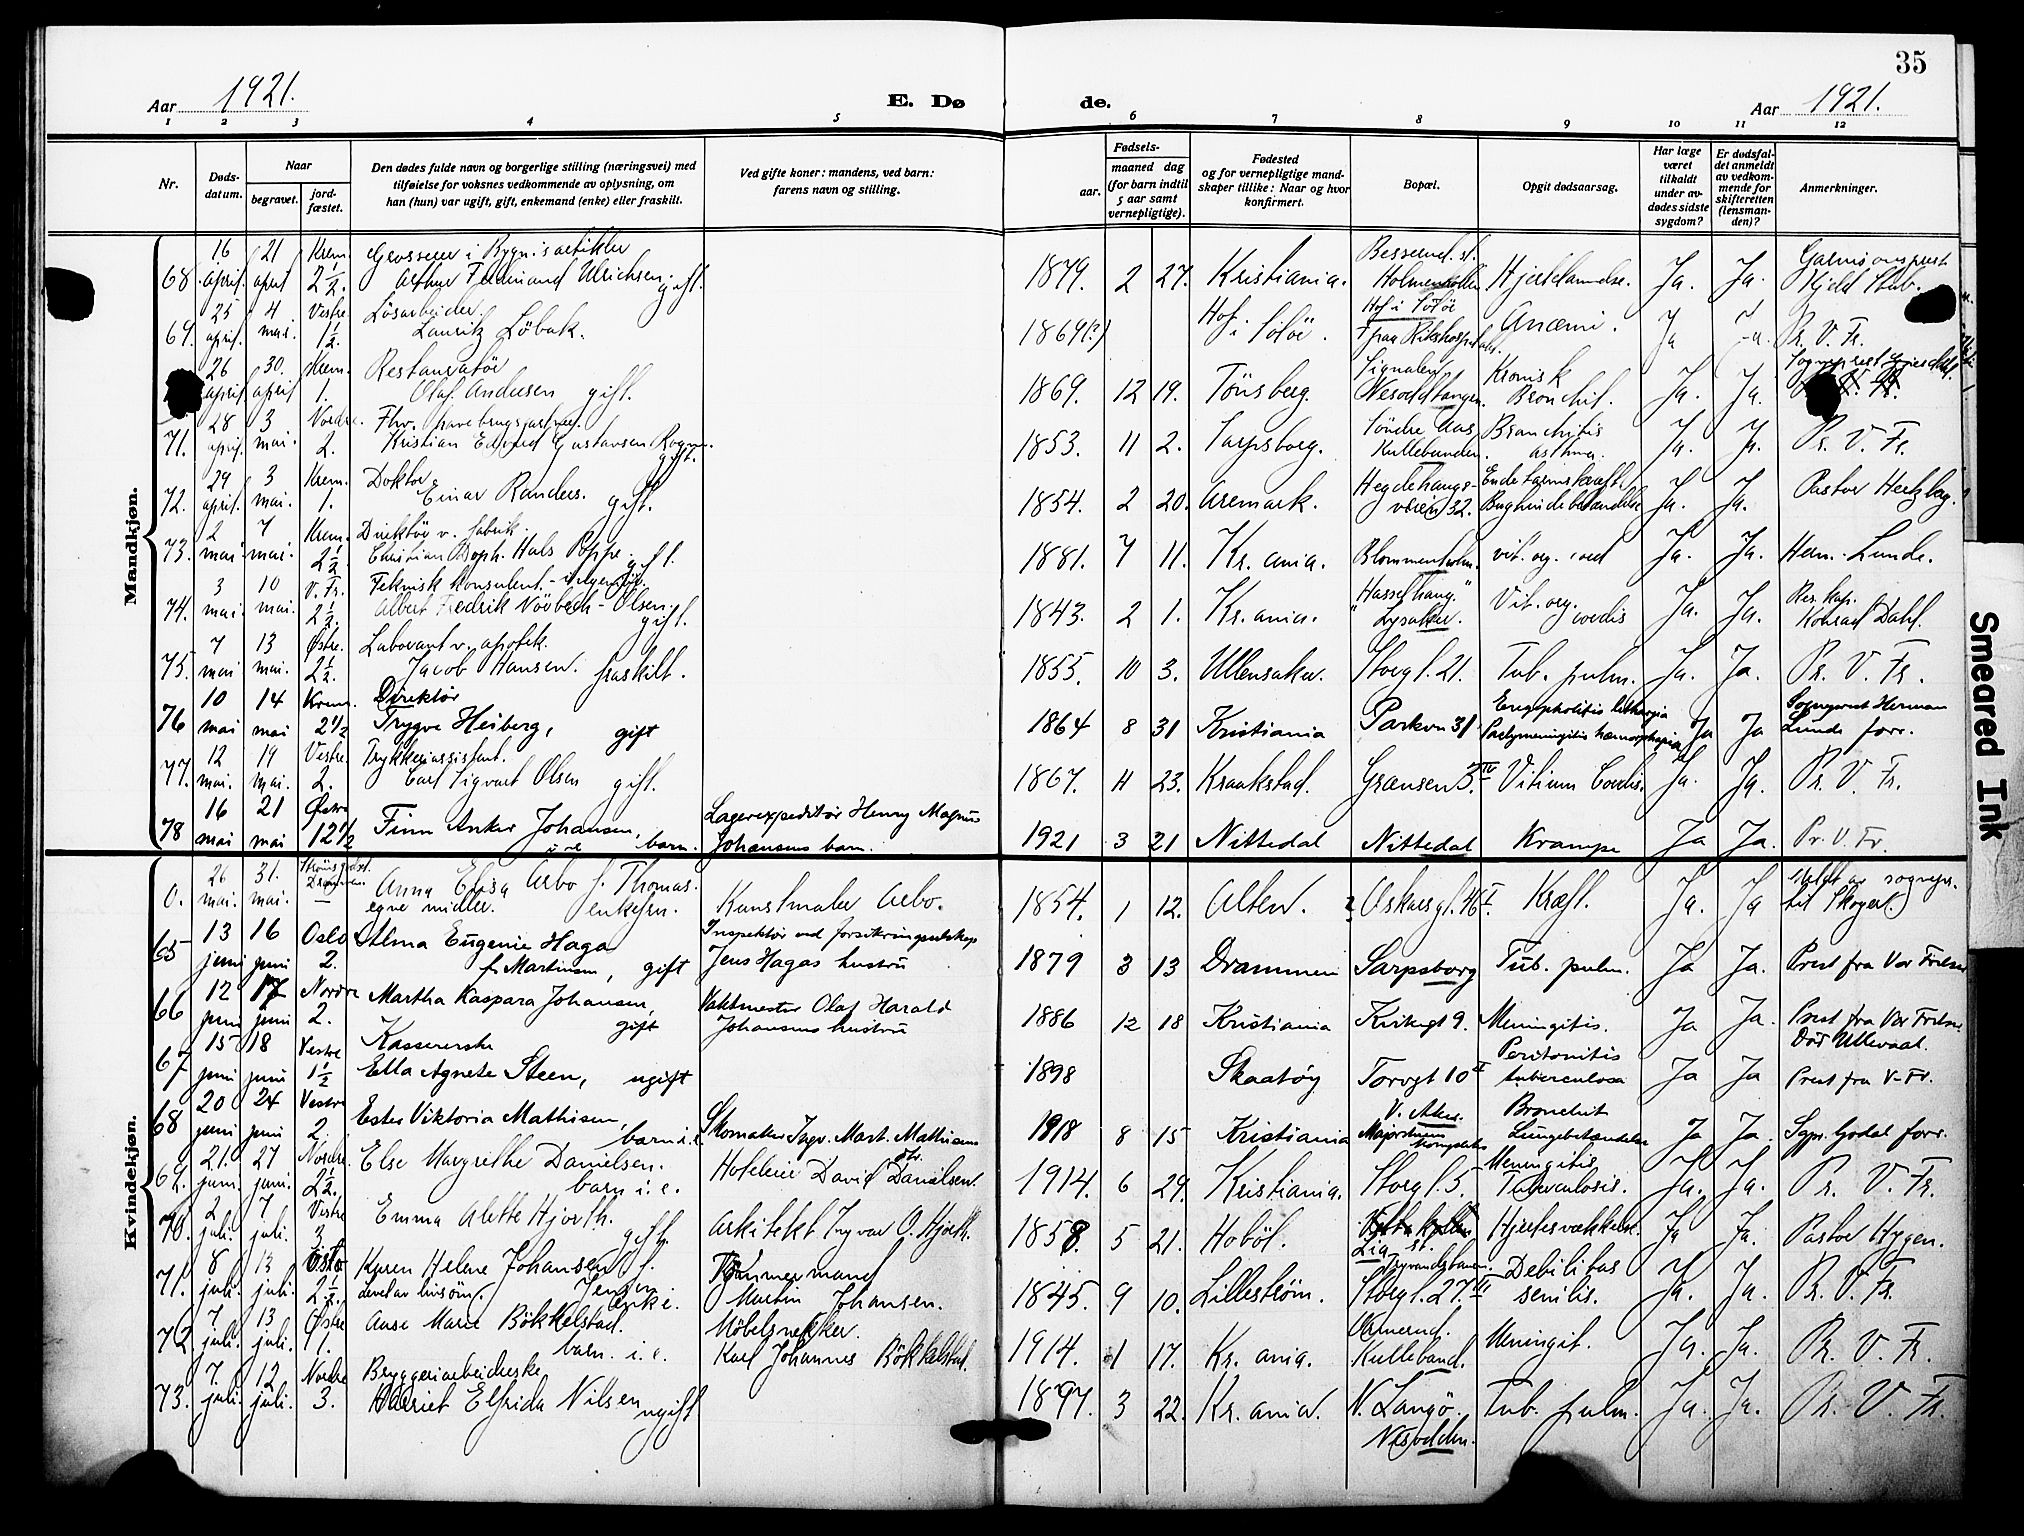 35
Aar 1921. E. Dø de. Aar 1921.
1 2 3 4 5 6 7 8 9 10 11 12
Nr.
Døds-
datum.
Naar
begravet.
jord-
fæstet.
Den dødes fulde navn og borgerlige stilling (næringsvei) med
tilføielse for voksnes vedkommende av oplysning, om
han (hun) var ugift, gift, enkemand (enke) eller fraskilt.
Ved gifte koner: mandens, ved barn:
farens navn og stilling.
Fødsels-
aar.
maaned dag
(for barn indtil
5 aar samt
vernepligtige).
Fødested
og for vernepligtige mand-
skaper tillike: Naar og hvor
konfirmert.
Bopæl.
Opgit dødsaarsag.
Har læge
været
tilkaldt
under av-
dødes sidste
sygdom?
Er dødsfal-
det anmeldt
av vedkom-
mende for
skifteretten
(lensman-
den)?
Anmerkninger.
Mandkjøn.
68. 16 april 21 april Krem. 2½. Grosserer i Bygn.s artikler
Arthur Ferdinand Ulrichsen. gift. 1879. 2 27. Kristiania. Besserud. st. Holmenkollen Hjertelammelse. Ja. Ja. Kjeld Stub.
69. 25 april. 4 mai. Vestre 1½. Løsarbeider.
Lauritz Löbak. 1869(?) Hof i Solør. Hof i Solør
Fra Rikshospitalet. Anæmi. Ja Ja. Pr. V. Fr.
26 april 30. april Krem. 1. Restauratør
Olaf Andersen gift. 1869. 12 19. Tönsberg. Signalen Nesoddtangen. Kronisk Bronchit. Ja. Ja. Sogneprest
71. 28 april. 3 mai. Nordre. 2. Fhv. havebrugsgartner.
Kristian Edvard Gustavsen Rogn. gift. 1853. 11 2. Sarpsborg. Søndre Aas, Kullebunden. Bronchitis asthma. Ja. Ja. Pr. V. Fr.
72. 29 april. 3 mai. Krem. 1. Doktor
Einar Randers. gift. 1854. 2 20. Aremark. Hegdehaugs-
veien 32. Endetarmskræft.
Bughindebetændelse Ja. Ja. Pastor Hertzberg.
73. 2 mai 7 mai. Krem. 2½ Direktør v. fabrik.
Christian Doph. Hals Poppe. gift. 1881. 7 11. Kr.ania. Blommenholm. vit. org. cord Ja. Ja. Herm. Lunde.
74. 3 mai. 10 mai. V. Fr. 2½. Teknisk konsulent. - ingeniør.
Albert Fredrik Nörbech-Olsen. gift. 1843. 2 1. Kr.ania. "Hasselhaug"
Lysaker. Vit. org. cordis Ja. Ja. Res. kap.
Konrad Dahl.
75. 7 mai 13 mai. Østre. 2½. Laborant v. apotek.
Jacob Hansen. fraskilt. 1855. 10 3. Ullensaker. Storgt. 21. Tub. pulm. Ja. Ja. Pr. V. Fr.
76 10 mai 14 mai Krem. 2½ Direktør
Trygve Heiberg, gift 1864 8 31 Kristiania Parkvn 31 Ja Ja Sogneprest Herman
Lunde forr.
77. 12 mai. 19 mai. Vestre. 2. Trykkeriassistent.
Carl Sigvart Olsen gift. 1867. 4 23. Kraakstad. Grænsen 3. IV Vitium Cordis. Ja. Ja. Pr. V. Fr.
78 16 mai 21 mai Østre 12½ Finn Anker Johansen, u.e. barn. Lagerexpeditør Henry Magnus
Johansens barn. 1921 3 21 Nittedal Nittedal Krampe Ja Ja. Pr. V. Fr.
Kvindekjøn.
0. 26 mai. 31. mai. Anna Eliza Arbo f. Thomas.
egne midler. enkefru. Kunstmaler Arbo. 1854. 1 12. Alten. Oskarsgt. 46 I. Kræft. Ja. Ja av sognepr.
til Skoger.
65 13 juni 16 juni Oslo 2. Alma Eugenie Haga
f. Martinsen, gift Inspektør ved forsikringsselskap
Jens Hagas hustru 1879 3 13 Drammen Sarpsborg Tub. pulm. Ja Ja. Prest fra Vor Frelser
66 12 juni 17 juni Nordre 2. Martha Kaspara Johansen,
gift Vaktmester Olaf Harald
Johansens hustru 1886 12 18 Kristiania Kirkegt 9. Meningitis. Ja Ja. Prest fra Vor Frelser
Død Ullevaal.
67 15 juni 18 juni Vestre 1½ Kassererske
Ella Agnete Steen, ugift 1898 Skaatøy Torvgt 10 II Peritonitis
tuberculosa Ja Ja Prest fra V-Fr.
68 20 juni 24 juni Vestre 2. Ester Viktoria Mathisen,
barn i.e. Skomaker Ingv. Mart. Mathisens dtr. 1918 8 15 Kristiania V. Aker.
Majorstuen Bronchit
Lungebetændelse Ja Ja. Sgpr. Godal forr.
69. 21. juni. 27 juni. Nordre 2½. Else Margrethe Danielsen.
barn i.e. Hoteleier David Danielsen. 1914. 6 29. Kristiania. Storgt. 5. Meningitis
Tuberculosis. Ja. Ja. Pr. V. Fr.
70. 2 juli. 7 juli. Vestre 3 Emma Alette Hjorth. gift. Arkitekt Ingvar O. Hjorth. 1858. 5 21. Hobøl. Lia st.
Tryvandsbanen. Hjertesvækkelse. Ja Ja. Pastor Hygen.
71. 8 juli. 13 juli. Østre 2½. Karen Helene Johansen f. Jensen.
Levet av livsöm. enke. Tømmermand
Martin Johansen. 1845. 9 10. Lilleström. Storgt. 27 III Debilitas
senilis. Ja. Ja. Pr. V. Fr.
72 7. juli. 13 juli. Østre 1. Aase Marie Bökkelstad.
barn. i.e. Möbelsnekker.
Karl Johannes Bökkelstad. 1914. 1 17. Kr.ania. Ormerud.
Kullebund. Meningit. Ja. Ja. Pr. V. Fr.
73. 7. juli. 12 juli. Nordre 3. Bryggeriarbeiderske
Harriet Elfrida Nilsen ugift 1897. 3 22. Kr.ania. N. Langö.
Nesodden. Tub. pulm. Ja. Ja. Pr. V. Fr.
Smeared Ink